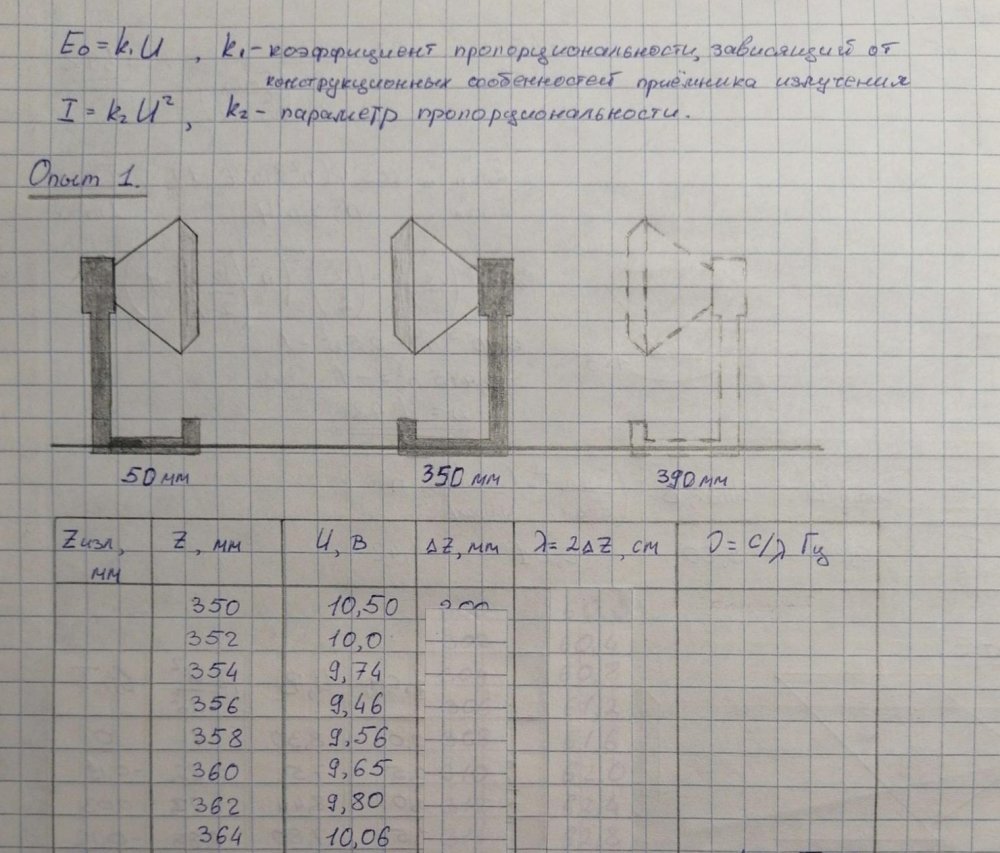 E₀ = k₁U , k₁ - коэффициент пропорциональности, зависящий от
конструкционных особенностей приёмника излучения
I = k₂U² , k₂ - параметр пропорциональности.
Опыт 1.
50 мм 350 мм 390 мм
Zизл, мм Z, мм U, В ΔZ, мм λ = 2ΔZ, см ν = c/λ Гц
350 10,50
352 10,0
354 9,74
356 9,46
358 9,56
360 9,65
362 9,80
364 10,06